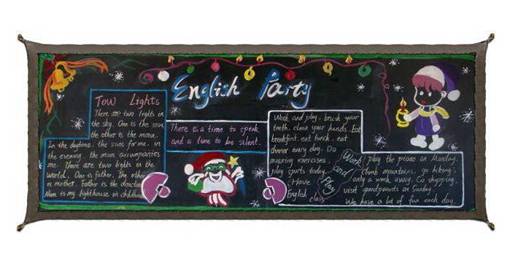 English Party
Tow Lights
There are two lights in
the sky. One is the sun,
the other is the moon.
In the daytime, the sun for me. in
the evening, the moon accompanies
me. There are two lights in the
world. One is father, the other
is mother. Father is the direction
Mom is my lighthouse in childhood
There is a time to speak
and a time to be silent.
Work and play. brush your
teeth. clean your hands. Eat
breakfast eat lunch. eat
dinner every day. Do
morning exercises
play sports today.
I have
English class
Work
and
Play
play the piano on Monday.
climb mountains, go hiking.
only a week away. Go shopping.
visit grandparents on Sunday.
We have a lot of fun each day.